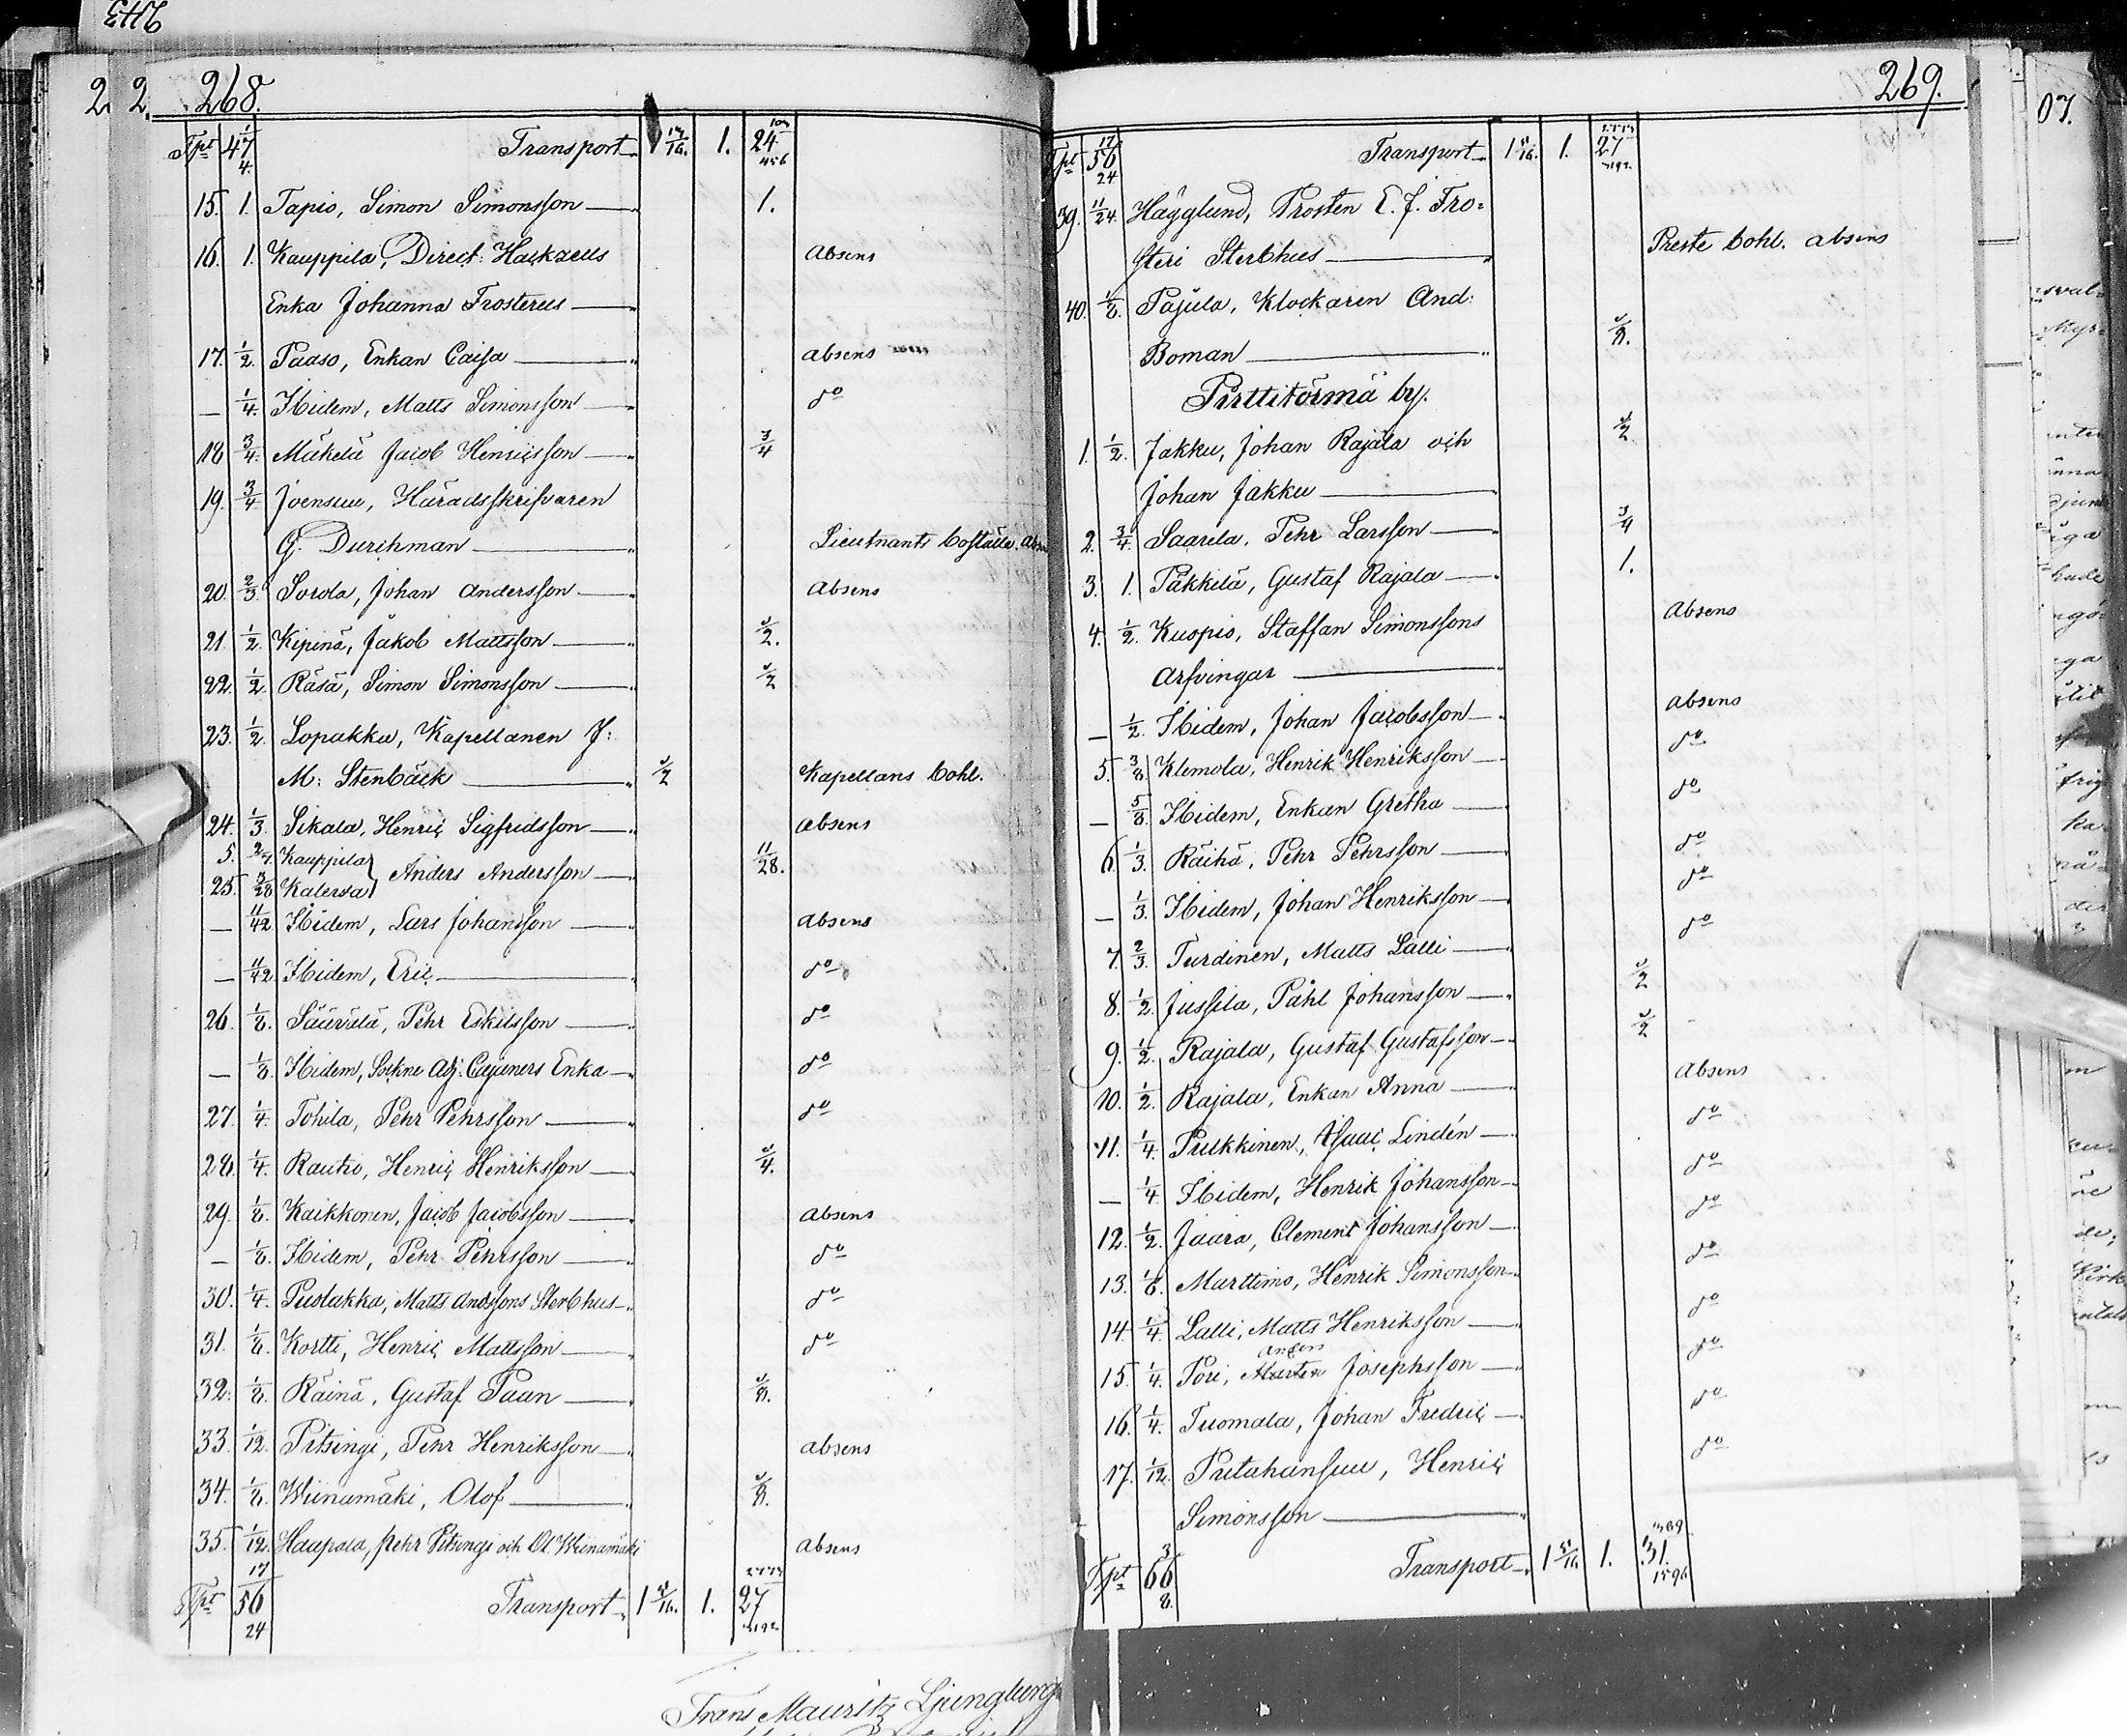 268.
Tpt 47 1/4. Transport 1 1. 24
15. 1. Tapio, Simon Simonsson 1.
16. 1. Kauppila, Direct: Hackzells Absens
Enka Johanna Frosterus
17. 1/2. Paaso, Enkan Caisa absens
— 1/4. Ibidem, Matts Simonsson do
18 3/4. Mäkelä Jacob Henricsson 3/4
19. 3/4. Joensuu, Häradsskrifvaren
G. Durchman Lieutnants boställe. Absens
20. 2/3. Sorola, Johan Andersson Absens
21. 1/2. Kipinä, Jakob Mattsson 1/2.
22. 1/2. Räsä, Simon Simonsson 1/2
23. 1/2. Lopakka, Kapellanen J:
M: Stenbäck 1/2 Kapellans bohl.
24. 1/3. Sikala, Henric Sigfridsson absens
5. 2/7. Kauppila
25. 3/28 Katerva Anders Andersson 11/28.
— 11/42 Ibidem, Lars Johansson absens
— 11/42. Ibidem, Eric do
26. 1/8. Säärälä, Pehr Eskilsson do
— 1/8. Ibidem, Sockne Adj: Cajaners Enka do
27. 1/4. Tohila, Pehr Pehrsson do
28. 1/4. Rautio, Henric Henriksson 1/4.
29. 1/8. Kaikkonen, Jacob Jacobsson absens
— 1/8. Ibidem, Pehr Pehrsson do
30. 1/4. Puolakka, Matts Andssons Sterbhus do
31. 1/8. Kortti, Henric Mattsson do
32. 1/8. Räinä, Gustaf Paan 1/8.
33. 1/12. Pitsingi, Pehr Henriksson absens
34. 1/8. Wiinamäki, Olof 1/8.
35. 1/12. Haapala, Pehr Pitsingi och Ol. Wiinamäki absens
Tpt 56 17/24 Transport 1 5/16. 1. 27
Frans Mauritz Ljunglung
269.
Tpt 56 17/24 Transport 1 5/16. 1. 27
39. 11/24. Hägglund, Prosten E. J. Fro=
steri Sterbhus Preste bohl. absens
40. 1/8. Pajula, Klockaren And:
Boman 1/8.
Pirttitörmä by.
1. 1/2. Jakku, Johan Rajala och 1/2
Johan Jakku
2. 3/4. Saarela, Pehr Larsson 3/4
3. 1. Päkkilä, Gustaf Rajala 1.
4. 1/2. Kuopio, Staffan Simonssons Absens
arfvingar
— 1/2. Ibidem, Johan Jacobsson absens
5. 3/8 Klemola, Henrik Henriksson do
— 5/8. Ibidem, Enkan Gretha do
6. 1/3. Räihä, Pehr Pehrsson do
— 1/3. Ibidem, Johan Henriksson do
7. 2/3. Turdinen, Matts Lalli do
8. 1/2. Jussila, Påhl Johansson 1/2
9. 1/2. Rajala, Gustaf Gustafsson 1/2
10. 1/2. Rajala, Enkan Anna Absens
11. 1/4. Pulkkinen, Isaac Lindén do
— 1/4. Ibidem, Henrik Johansson do
12. 1/2. Jaara, Clement Johansson do
13. 1/8. Marttimo, Henrik Simonsson do
14. 1/4. Lalli, Matts Henriksson do
15. 1/4. Pori, Anders Josephsson do
16. 1/4. Tuomala, Johan Fredric do
17. 1/12. Putahansuu, Henric do
Simonsson
Tpt 66 3/8. Transport 1 5/16 1. 31.